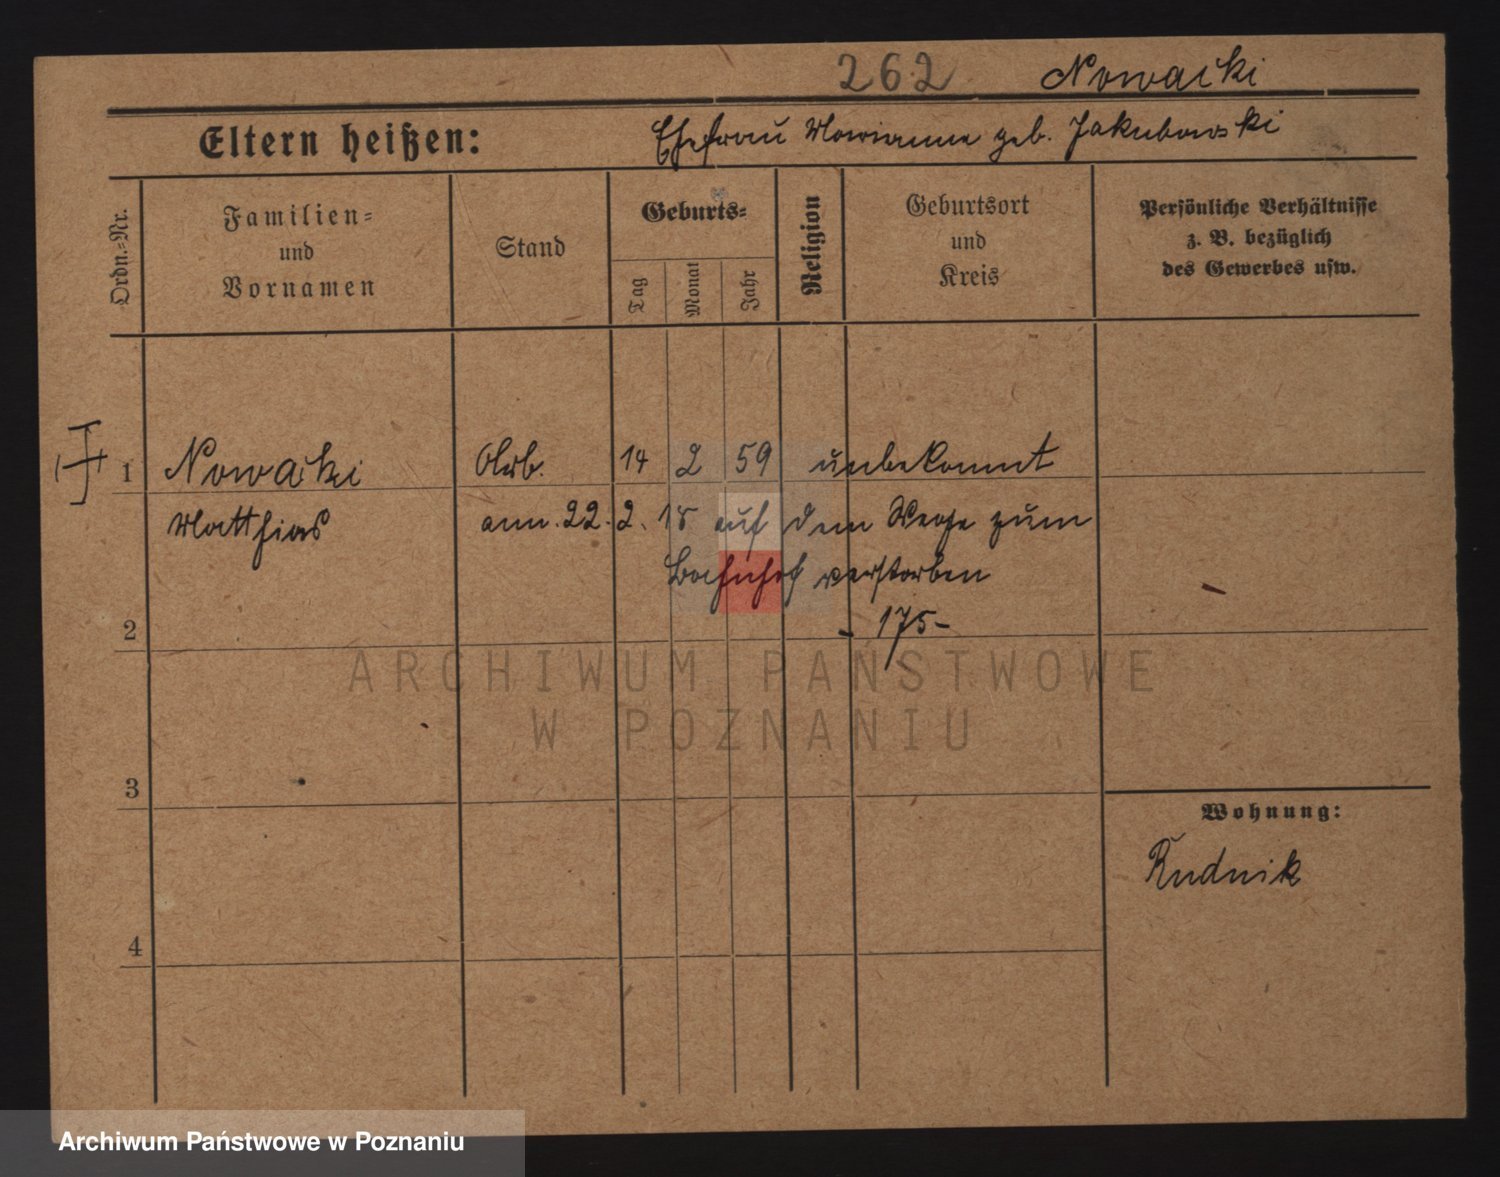 262 Nowacki
Eltern heißen: Ehefrau Marianne geb. Jakubowski
Ordn.-Nr.
Familien-
und
Vornamen
Stand
Geburts-
Tag
Monat
Jahr
Religion
Geburtsort
und
Kreis
Persönliche Verhältnisse
z. B. bezüglich
des Gewerbes usw.
1 Nowacki 14 2 59 unbekannt
Matthias am 22.2.18 auf dem Wege zum
Bahnhof verstorben
2 - 175-
ARCHIWUM PAŃSTWOWE
W POZNANIU
3
Wohnung:
Rudnik
4
Archiwum Państwowe w Poznaniu